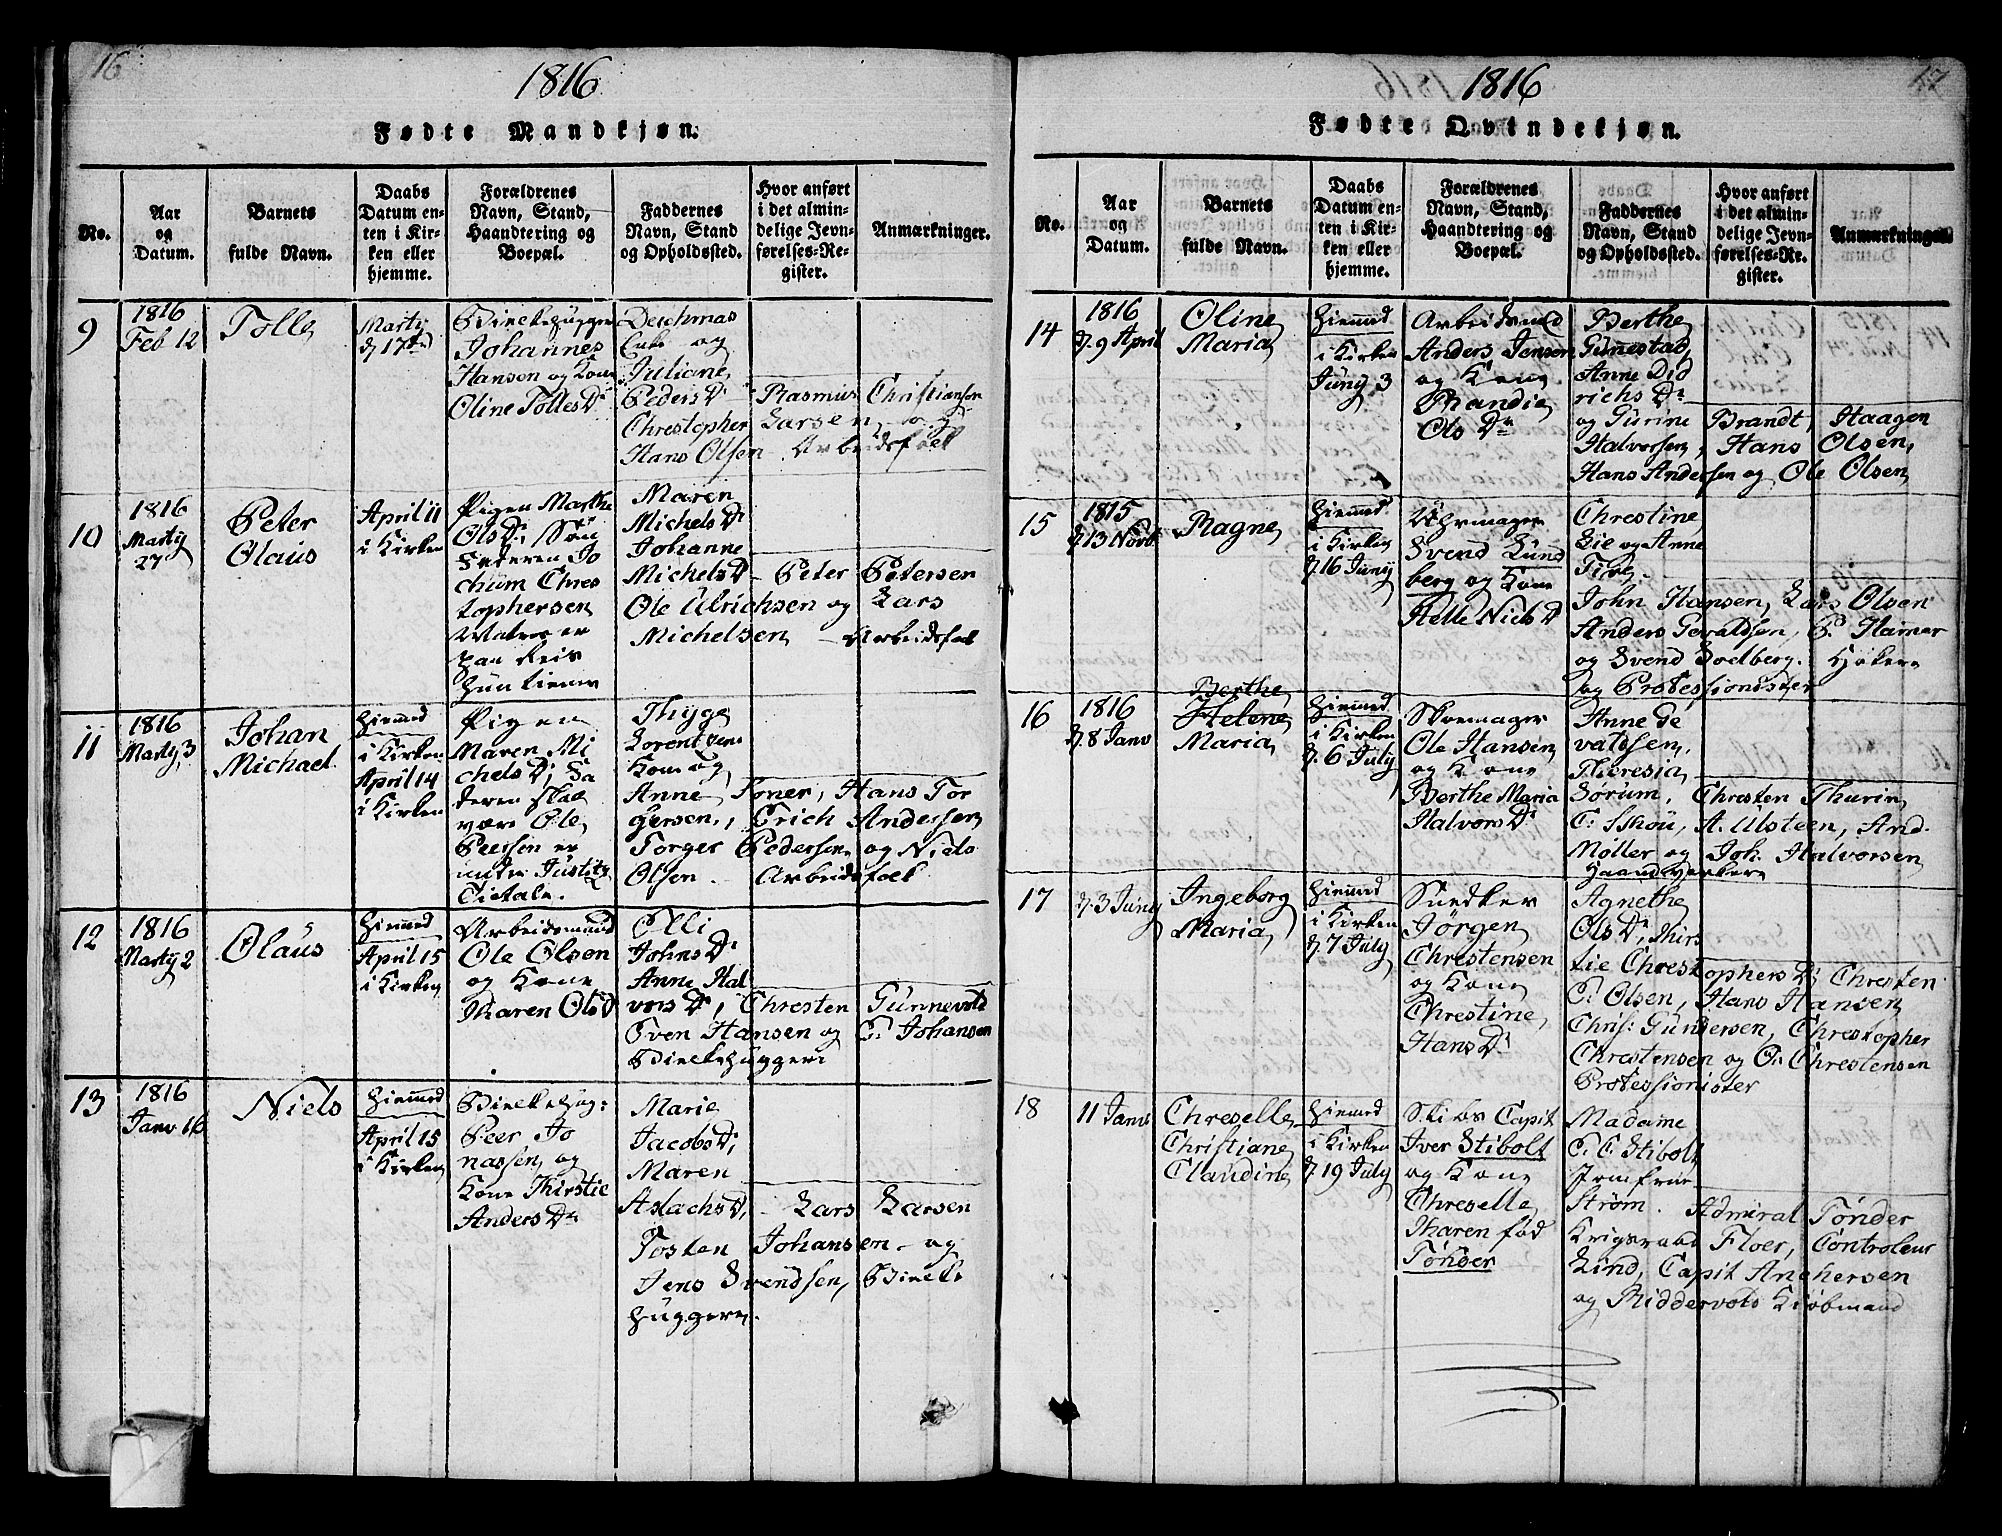 16
1816
Fødte Mandkjøn.
No.
Aar
og
Datum.
Barnets
fulde Navn.
Daabs
Datum en-
ten i Kir-
ken eller
hjemme.
Forældrenes
Navn, Stand,
Haandtering og
Boepæl.
Faddernes
Navn, Stand
og Opholdssted.
Hvor anført
i det almin-
delige Jevn-
førelses-Re-
gister.
Anmærkninger.
9
1816
Feb 12
Tolle
Martj
d 17de
Blokhugger
Johannes
Hansen og Kone
Oline TollesDr
Deichmas
Enke og
Juliane
PedersDr
Rasmus Christiansen
Christopher Larsen og
Hans Olsen Arbeidsfolk
10
1816
Martj
27
Peter
Olaus
April 11
i Kirken
Pigen Marthe
OlsDr; Søn
Faderen Jo
chum Chres
tophersen
Matros er
paa Reis
hun tiener
Maren
MichelsDr
Johanne
MichelsD Peter Petersen
Ole Ulrichsen og Lars
Michelsen Arbeidsfolk
11
1816
Martj 3
Johan
Michael
Hiemmed
i Kirken
April 14
i Kirken
Pigen
Maren Mi
chelsDr; Fa
deren skal
være Ole
Peersen er
under Justits
Tietale.
Thyge
Lorentzens
Kone og
Anne Toner, Hans Tor
gersen, Erich Andersen
Torger Pedersen og Niels
Olsen. Arbeidsfolk
12
1816
Martj 2
Olaus
Hiemmed
April 15
i Kirken
Arbeidsmand
Ole Olsen
og Kone
Karen OlsD
Elli
JohnsDr
Anne Hal
vorsDr, Chresten Gunnevold
Sven Hansen og C. Johansen
Blokhuggere
13
1816
Janv 16
Niels
Hiemmed
April 15
i Kirken
Blokhug:
Peer Jo
nassen og
Kone Kirstie
AndersDr
Marie
JacobsD;
Maren
AslachsD, Lars Larsen
Tosten Johansen og
Jens Svendsen, Blok
huggere.
17
1816
Fødte Qvindekjøn.
No.
Aar
og
Datum.
Barnets
fulde Navn.
Daabs
Datum en-
ten i Kir-
ken eller
hjemme.
Forældrenes
Navn, Stand,
Haandtering og
Boepæl.
Faddernes
Navn, Stand
og Opholdssted.
Hvor anført
i det almin-
delige Jevn-
førelses-Re-
gister.
Anmærkninger.
14
1816
d. 9 April
Oline
Maria
Hiemmed
i Kirken
Junj 3
Arbeidsmd
Anders Jensen
og Kone
Randie
OlsDr
Berthe
Gunestad,
Anne Did
richsDr
og Gurine Brandt, Haagen
Halvorsen, Hans Olsen,
Hans Andersen og Ole Olsen
15
1815
d. 13 Novb.
Ragne
Hiemmed
i Kirken
d. 16 Junij
Uhrmager
Svend Lund
berg og Kone
Helle NielsD
Chrestine
Lie og Anne
Tive.
John Hansen, Lars Olsen
Anders Gevaldsen, P. Hamer
og Svend Soelberg.
og Professionister
16
1816
d. 8 Janv
Berthe
Helene
Maria
Hiemmed
i Kirken
d. 6 July
Skomager
Ole Hansen
og Kone
Berthe Maria
HalvorsDr
Anne De
valdsen,
Theresia
Sørum. Chresten Thurin
C. Skou, A. Ulsteen, And.
Møller og Joh. Halvorsen
Haandverkere
17
d. 3 Junj
Ingeborg
Maria
Hiemmed
i Kirken
d. 7 July
Snedker
Jørgen
Chrestensen
og Kone
Chrestine
HansDr
Agnethe
OlsDr, Kirs
tie ChrestophersDr Chresten
C. Olsen, Hans Hansen
Chris: Gundersen, Chrestopher
Chrestensen og O. Chrestensen
Professionister
18
11 Janv
Chreselle
Christiane
Claudine
Hiemmed
i Kirken
d. 19 July
Skibs Capit
Iver Stibolt
og Kone
Chreselle
Karen fød
Tønder
Madame
C. C. Stibolt
Jomfrue
Strøm. Admiral Tønder
Krigsraad Floer, Controleur
Lind, Capit Anchersen
og Riddervold Kiøbmand